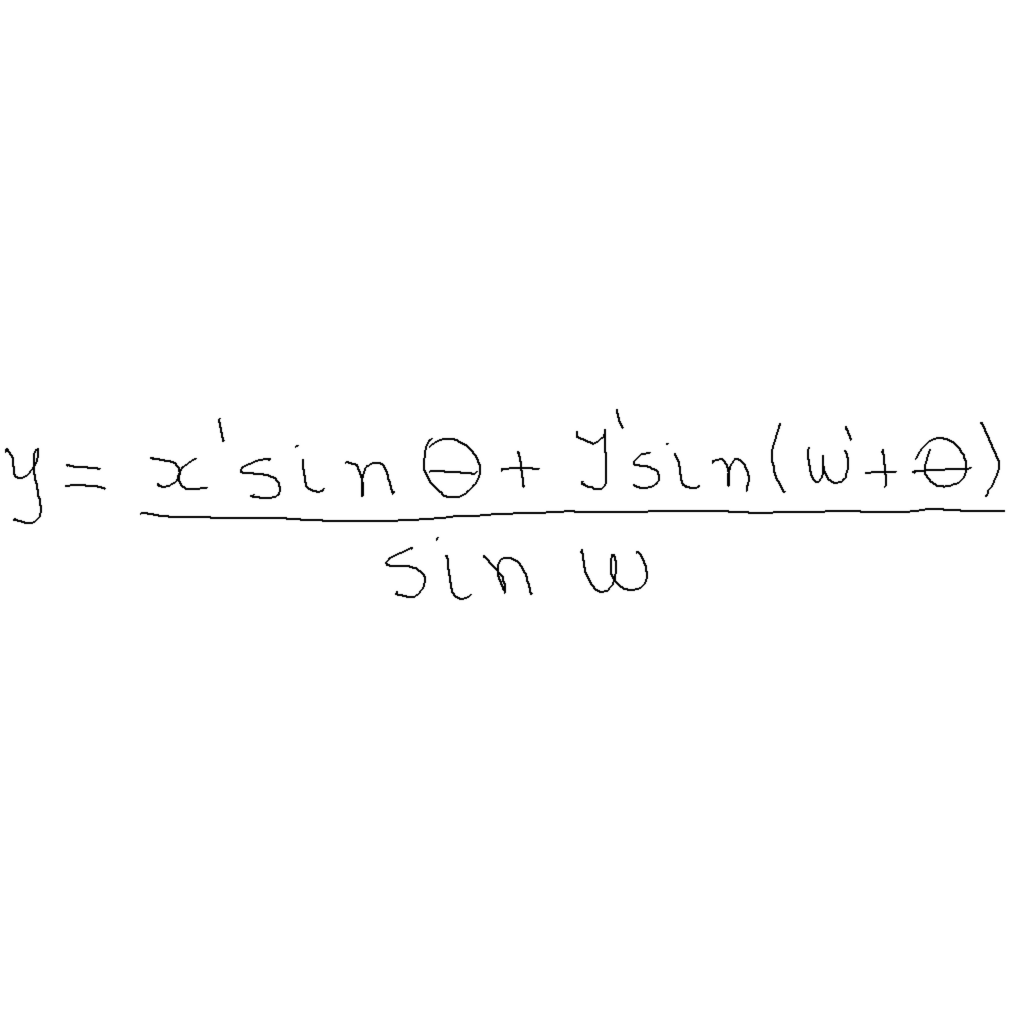 y = x'sinθ + y'sin(w'+θ)
sin w